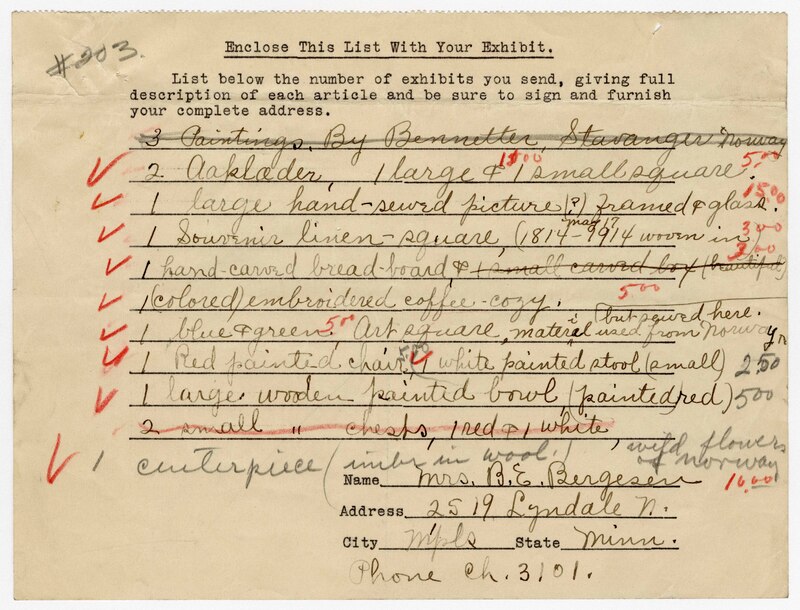 #203.
Enclose This List With Your Exhibit.
List below the number of exhibits you send, giving full
description of each article and be sure to sign and furnish
your complete address.
3 Paintings, By Bennetter, Stavanger Norway
2 Aaklæder, 1 large & 1 small square. 15 00 5 00
1 large hand-sewed picture (?) framed & glass. 15 00
1 Souvenir linen-square, (1814 - 1914 woven in may 17 3 00
1 hand-carved bread-board, & 1 small carved box (beautiful) 3 00
1 (colored) embroidered coffee-cozy. 5 00
1 blue & green Art square, material used from Norway, but sewed here. 5 00
1 Red painted chair, 1 white painted stool (small) 2 50
1 large wooden painted bowl (painted red) 5 00
2 small " chests, 1 red & 1 white,
1 centerpiece (imbr in wool.) wild flowers
of norway
Name Mrs. B. E. Bergesen 10.00
Address 2519 Lyndale N.
City Mpls State Minn.
Phone Ch. 3101.